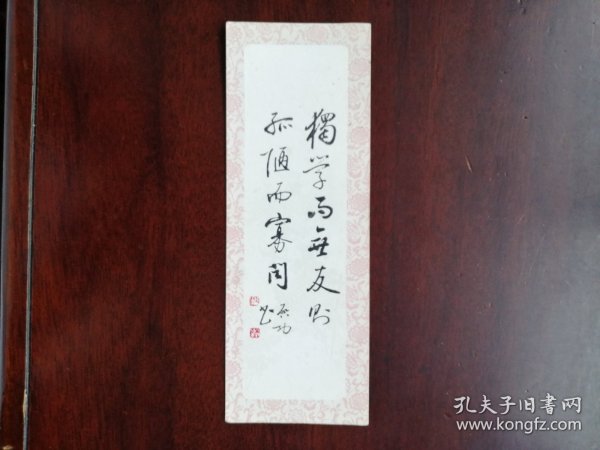 獨学而無友则
孤陋而寡闻
启功
孔夫子旧书网
www.kongfz.com